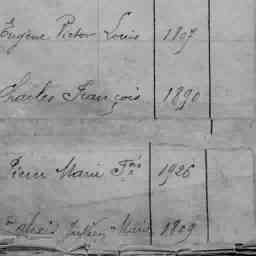 Eugène Victor Louis 1897
Charles François 1890
Pierre Marie Fçois 1926
Marie 1809